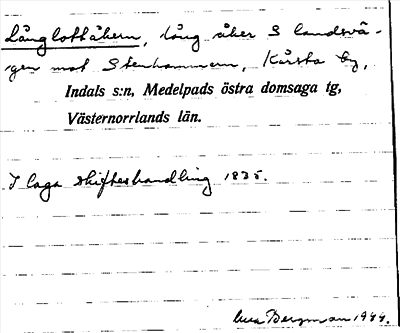 Långlottåkern, lång åker S landsvä-
gen mot Stenhammern, Kårsta by,
Indals s:n, Medelpads östra domsaga tg,
Västernorrlands län.
I laga skifteshandling 1835.
Bergman 1944.